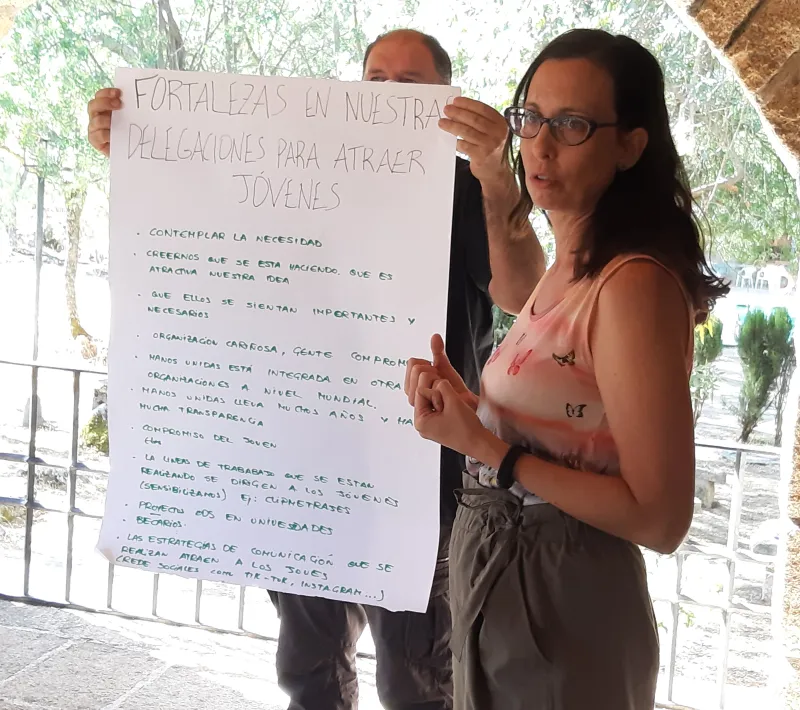 FORTALEZAS EN NUESTRA
DELEGACIONES PARA ATRAER
JÓVENES
. CONTEMPLAR LA NECESIDAD
. CREERNOS QUE SE ESTA HACIENDO. QUE ES
ATRACTIVA NUESTRA IDEA
. QUE ELLOS SE SIENTAN IMPORTANTES Y
NECESARIOS
. ORGANIZACIÓN CARIÑOSA, GENTE COMPROM
. MANOS UNIDAS ESTÁ INTEGRADA EN OTRA
ORGANIZACIONES A NIVEL MUNDIAL.
. MANOS UNIDAS LLEVA MUCHOS AÑOS Y HA
MUCHA TRANSPARENCIA
. COMPROMISO DEL JOVEN
. LA LINEAS DE TRABABAJO QUE SE ESTAN
REALIZANDO SE DIRIGEN A LOS JOVENES
(SENSIBILIZAMOS) Ej: CLIPMETRAJES
. PROYECTO ODS EN UNIVESIDADES
. BECARIOS.
. LAS ESTRATEGIAS DE COMUNICACIÓN QUE SE
REALIZAN ATRAEN A LOS JOVES
(REDE SOCIALES COMO TIK-TOK, INSTAGRAM....)